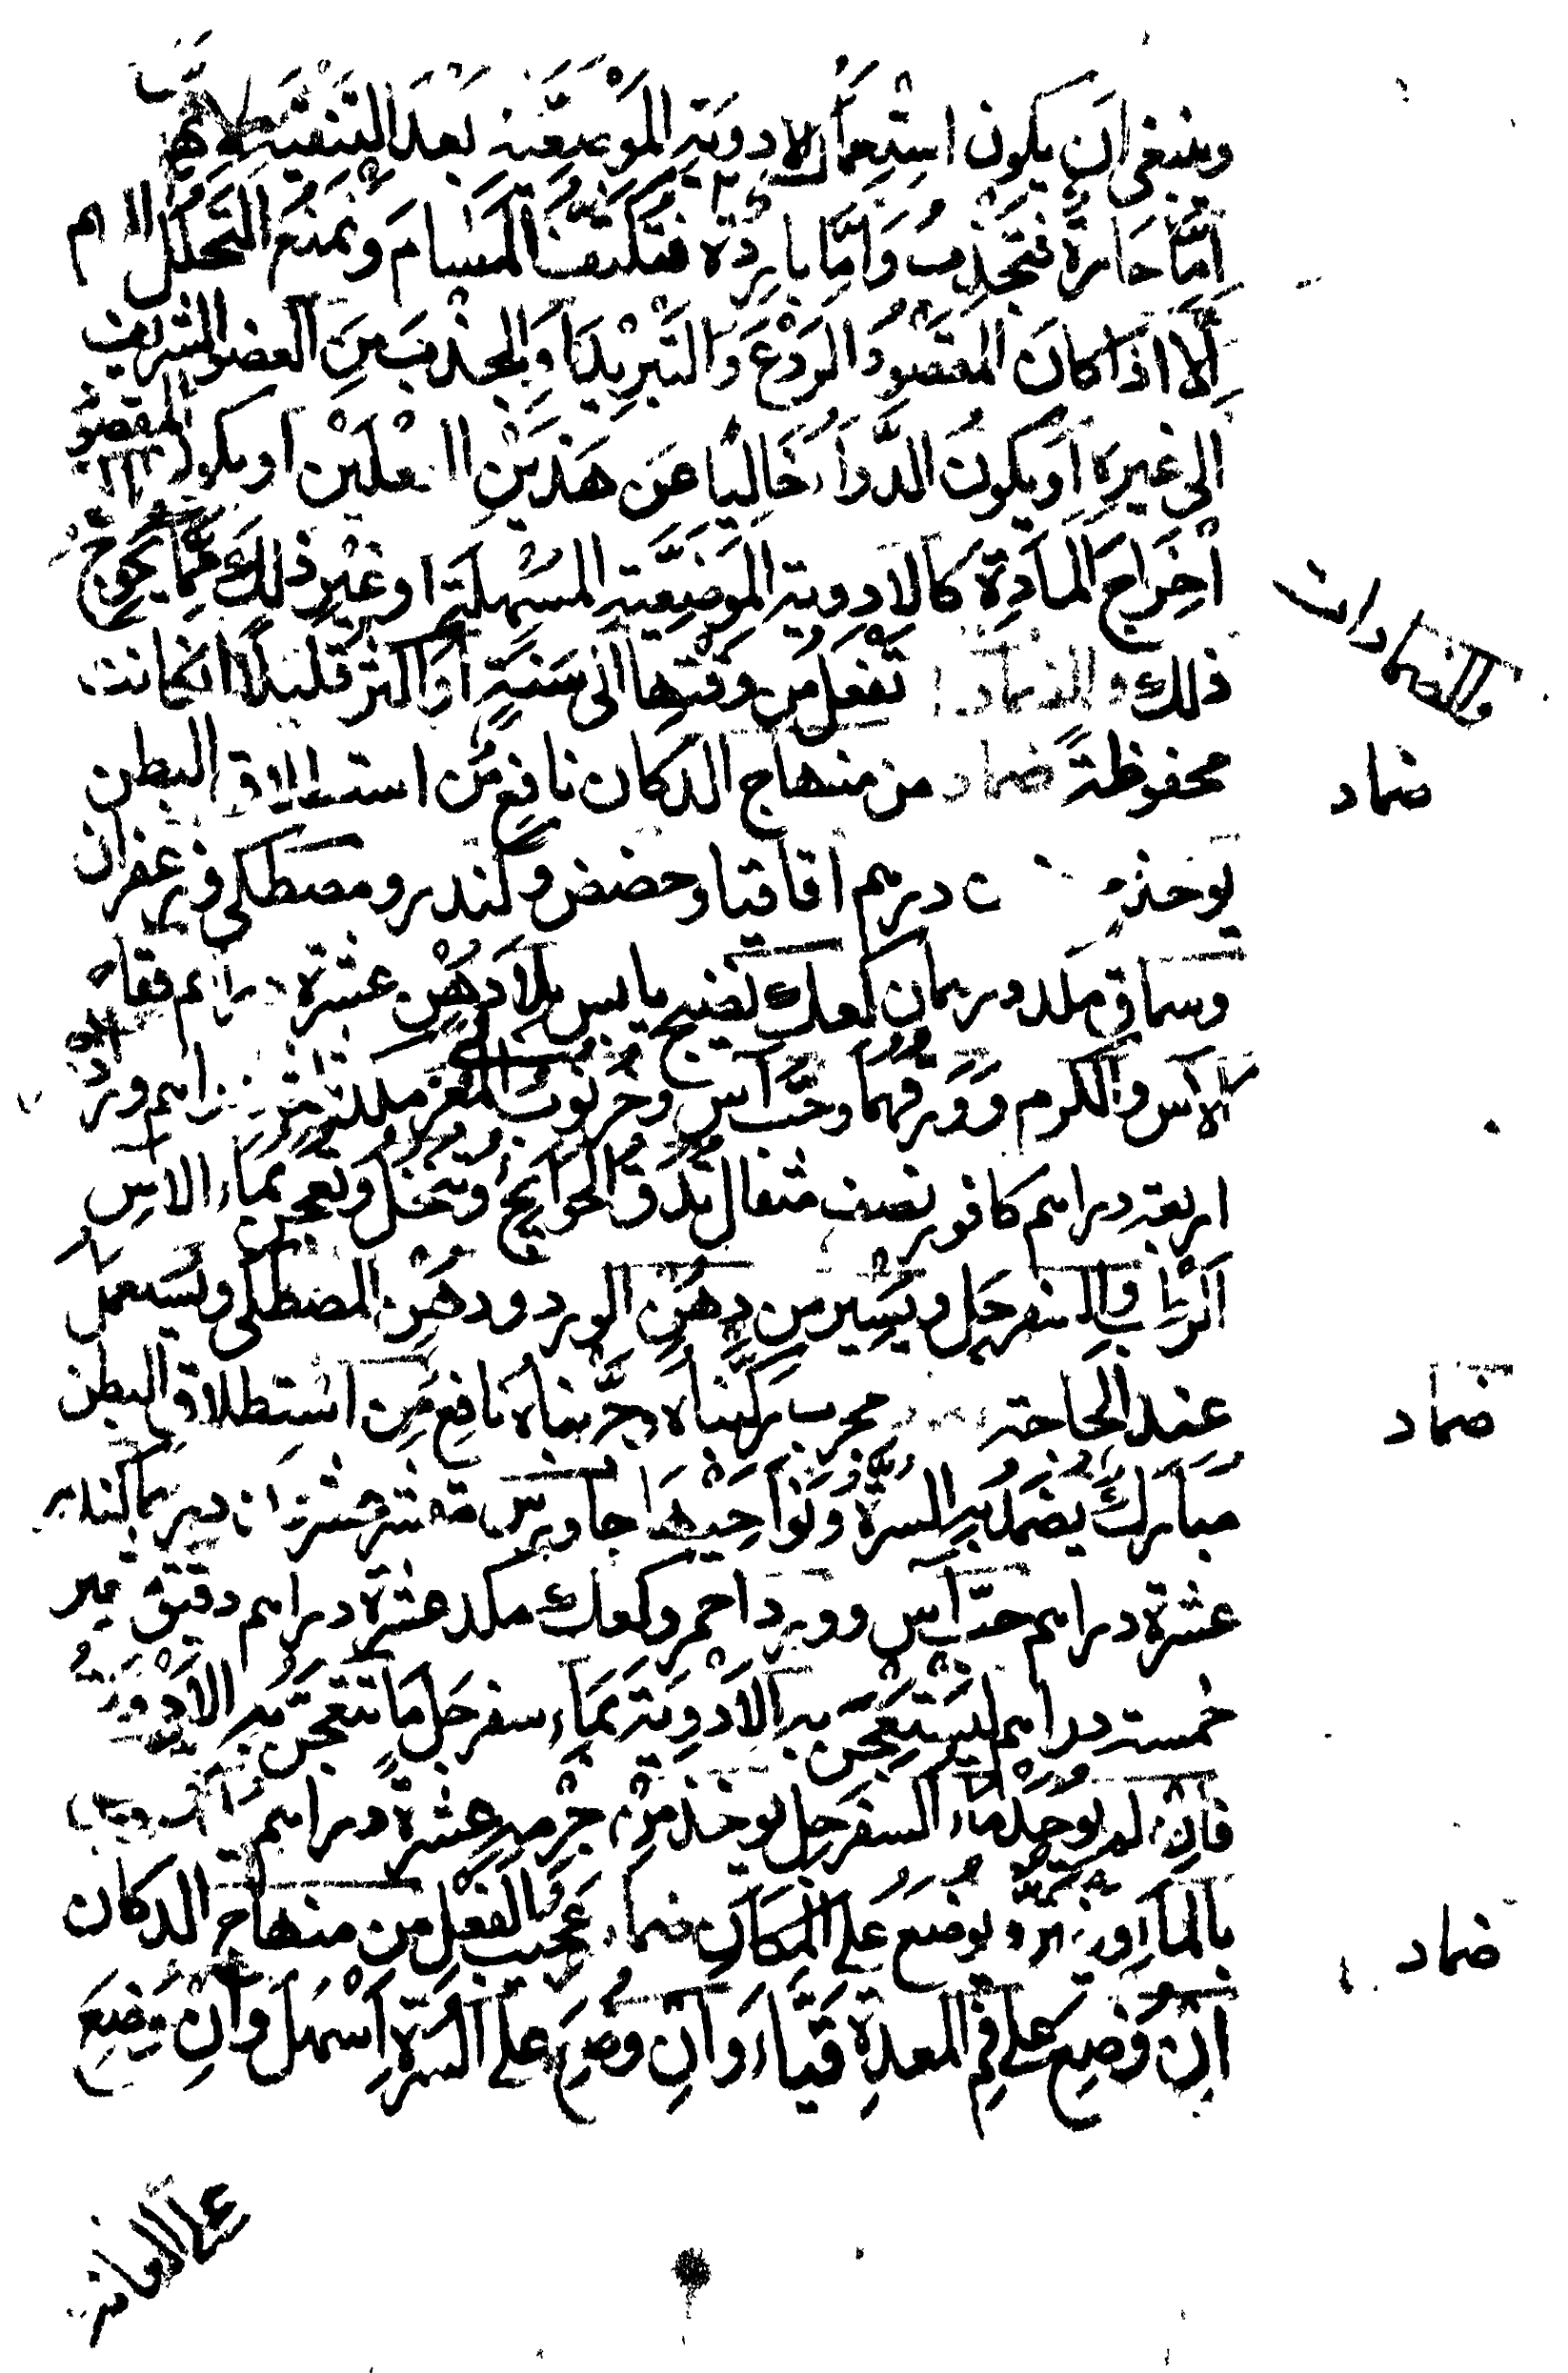 وينبغى ان يكون استعمال الادوية الموضعية بعد التنقية لانها
امَّا حَارة فتجذب وَامَّا باردة فتكثف المسام وتمنع التحلل اللهم
اِلَّا اذا كانَ المقصُودُ الرَدْعَ وَالتَّبرِيد اوالجذبَ مِنَ العضو الشريف
الى غيره اَويكونُ الدَّواءُ خَالِيًا عَن هَذَيْنِ الفعْلَيْن او يكون المقصُود
اخراج المادة كالادوية الموضعية المسهلة او غير ذلك مما يحوج
ذلك والضماد تفعل من وقتها الى سَنةٍ اَو اكثر قليلًا اذا كانت
محفوظةً ضماد من منهاج الدكان نافع من استطلاق البطن
يوخذ درهم اقاقيا وحضض وكندر ومصطكى وزعفران
وسماق مكد درهمان كعك نضيج يابس بلا دهن عشرة دراهم فقاح
الاس والكرم وَوَرقهما وحَبّ آس وخرنوب المعز مكد ثلثة دراهم ورد
اربعة دراهم كافور نصف مثقال تدق الحوايج وتنخل وتعجن بماء الاس
الرطب والسفرجل ويسير من دهن الورد ودهن المصطكى ويستعمل
عند الحاجة مجرب ركبناه وجَرَّبناه نافع من استطلاق البطن
مبارك يضمد به السرة ونواحيها جاورس مقشر عشرون درهما كندر
عشرة دراهم حبّ آس وورد احمر وكعك مكد عشرة دراهم دقيق
خمسة دراهم ليستعجن به الادوية بماء سفرجل ما تنعجن به الادوية
فان لم يوجد ماء السفرجل يوخذ من جرمه عشرة دراهم
بالماء ويوضع على المكان ضماد عجيب الفعل من منهاج الدكان
ان وُضِع على فم المعدة قيَّاء وان وضِع على السرة اَسْهل وان وضِعَ
والضمادات
ضماد
ضماد
ضماد
على العانة